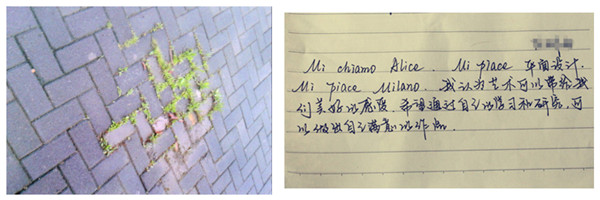 Mi chiamo Alice. Mi piace 平面设计,
Mi piace Milano. 我认为艺术可以带给我
们美好的感受,希望通过自己的学习和研究,可
以做出自己满意的作品.